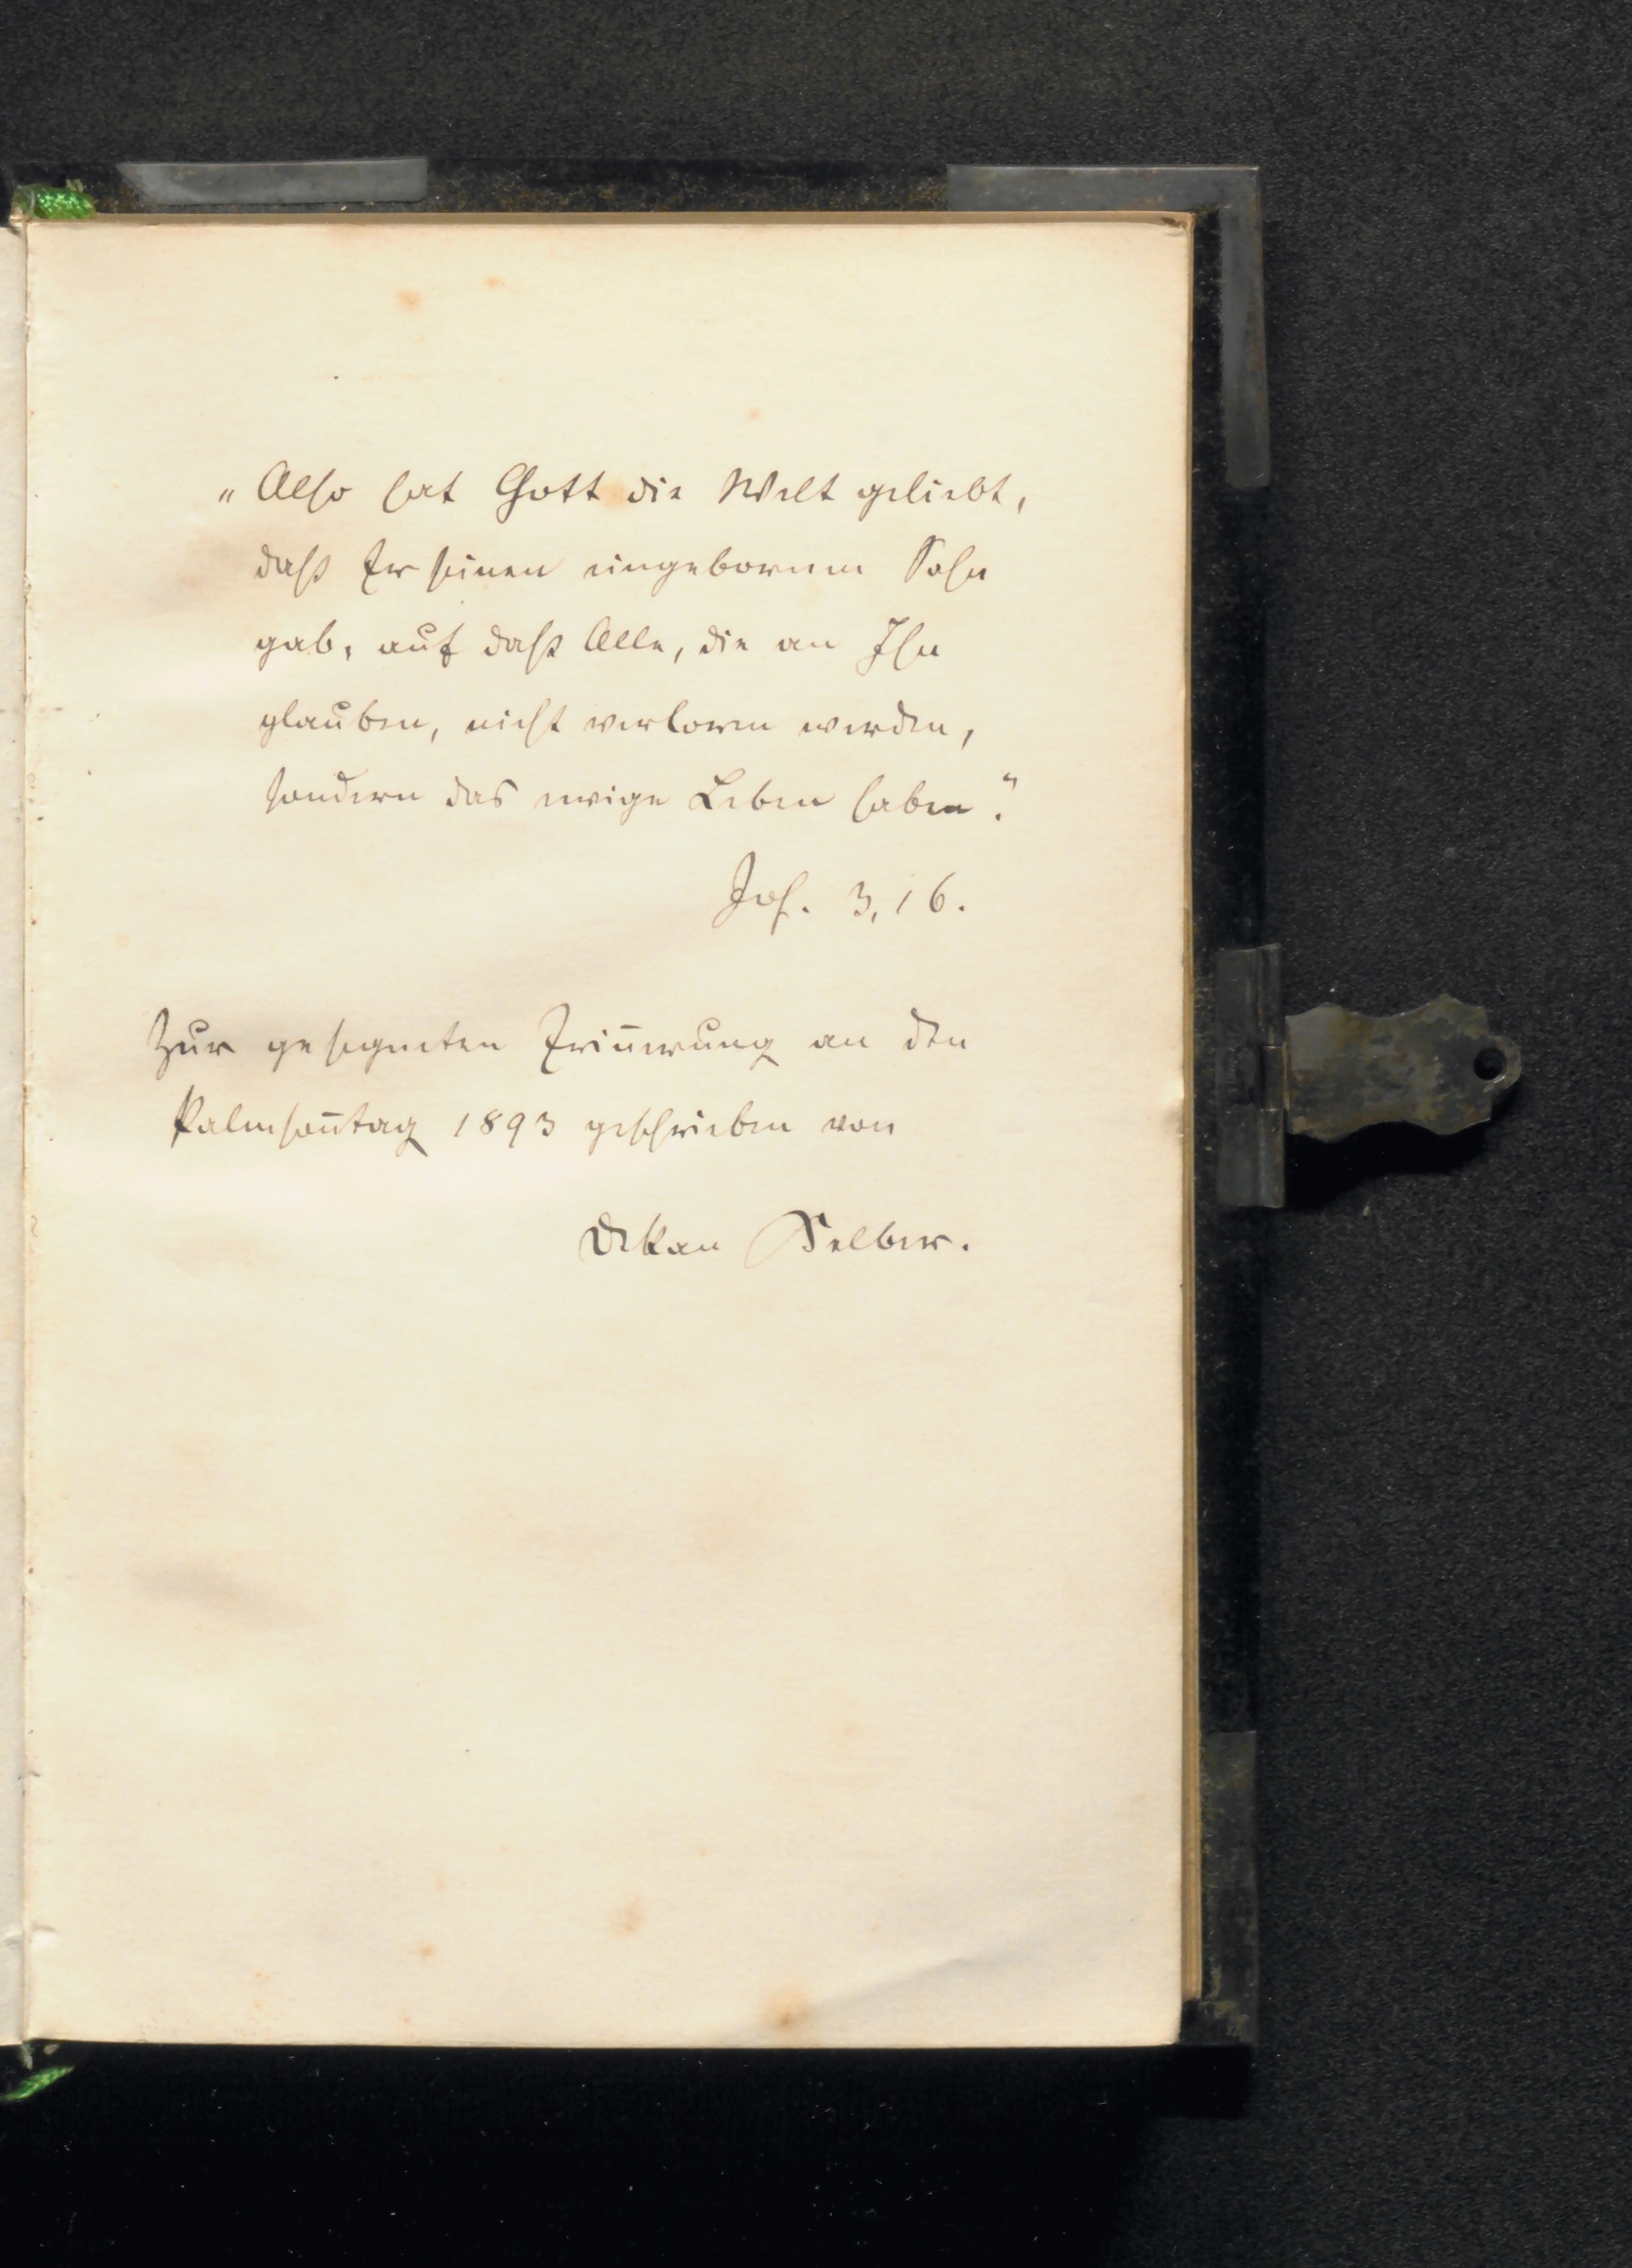 „Also hat Gott die Welt geliebt,
daß Er seinen eingebornen Sohn
gab, auf daß Alle, die an Ihn
glauben, nicht verloren werden,
sondern das ewige Leben haben.“
Joh. 3, 16.
Zur gesegneten Erin̄erung an den
Palmson̄tag 1893 geschrieben von
Dekan Selber.